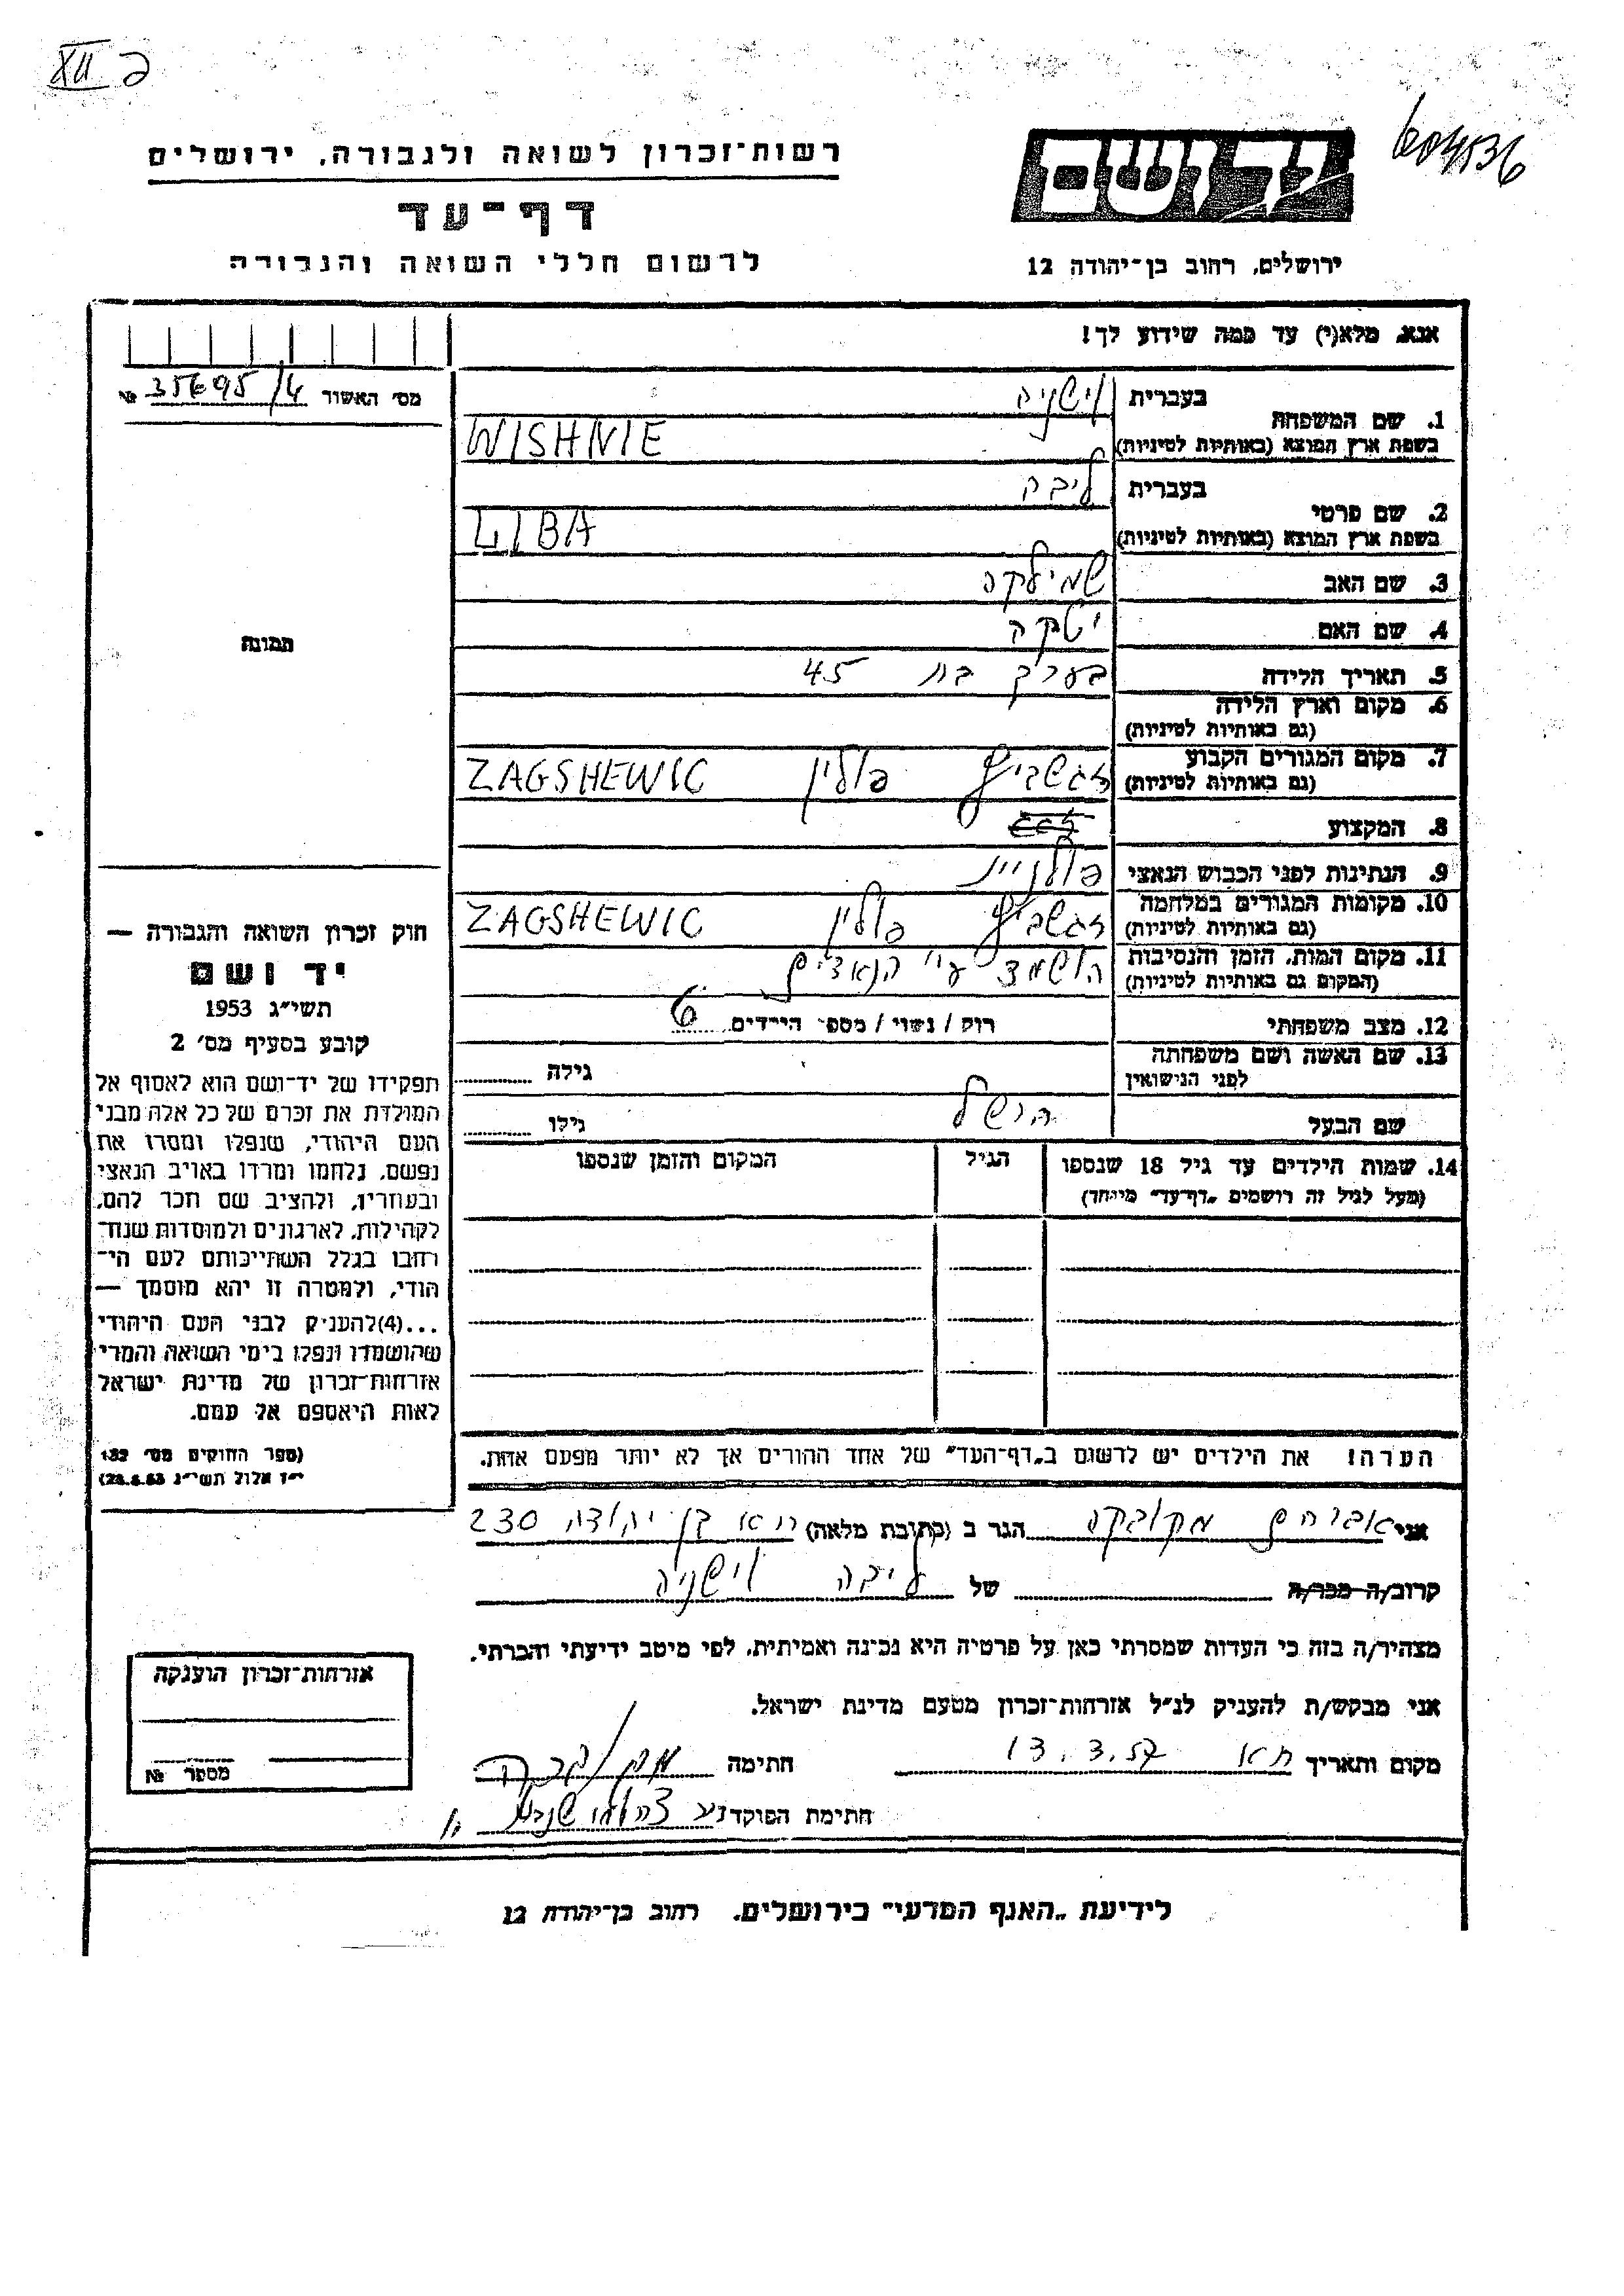 XII ב
604536
יד ושם
ירושלים, רחוב בן־יהודה 12
רשות־זכרון לשואה ולגבורה, ירושלים
דף־עד
לרשום חללי השואה והגבורה
אנא, מלא(י) עד כמה שידוע לך!
מס׳ האשור 35695/4 №
1. שם המשפחה
בעברית וישניה
בשפת ארץ המוצא (באותיות לטיניות) WISHNIE
2. שם פרטי
בעברית ליבה
בשפת ארץ המוצא (באותיות לטיניות) LIBA
3. שם האב שמילקה
4. שם האם יטקה
5. תאריך הלידה בערך בת 45
6. מקום וארץ הלידה
(גם באותיות לטיניות)
7. מקום המגורים הקבוע זגשביץ פולין ZAGSHEWIC
(גם באותיות לטיניות)
8. המקצוע
9. הנתינות לפני הכבוש הנאצי פולניית
10. מקומות המגורים במלחמה זגשביץ פולין ZAGSHEWIC
(גם באותיות לטיניות)
11. מקום המות, הזמן והנסיבות הושמד ע״י הנאצים
(המקום גם באותיות לטיניות)
12. מצב משפחתי רוק / נשוי / מספר הילדים 6
13. שם האשה ושם משפחתה
לפני הנישואין גילה
שם הבעל הושל גילו
14. שמות הילדים עד גיל 18 שנספו הגיל המקום והזמן שנספו
(מעל לגיל זה רושמים „דף־עד״ מיוחד)
הערה! את הילדים יש לרשום ב„דף־העד״ של אחד ההורים אך לא יותר מפעם אחת.
תמונה
חוק זכרון השואה והגבורה —
יד ושם
תשי״ג 1953
קובע בסעיף מס׳ 2
תפקידו של יד־ושם הוא לאסוף אל
המולדת את זכרם של כל אלה מבני
העם היהודי, שנפלו ומסרו את
נפשם, נלחמו ומרדו באויב הנאצי
ובעוזריו, ולהציב שם וזכר להם,
לקהילות, לארגונים ולמוסדות שנח־
רחבו בגלל השתייכותם לעם הי־
הודי, ולמטרה זו יהא מוסמך —
...(4)להעניק לבני העם היהודי
שהושמדו ונפלו בימי השואה והמרי
אזרחות־זכרון של מדינת ישראל
לאות היאספם אל עמם.
(ספר החוקים מס׳ 132
י״ז אלול תשי״ג 28.8.53)
אני אברהם מקובקה הגר ב (כתובת מלאה) ת״א בן יהודה 230
קרוב/ה מכר/ה של ליבה וישניה
מצהיר/ה בזה כי העדות שמסרתי כאן על פרטיה היא נכונה ואמיתית, לפי מיטב ידיעתי והכרתי.
אני מבקש/ת להעניק לנ״ל אזרחות־זכרון מטעם מדינת ישראל.
מקום ותאריך ת״א 13.3.57 חתימה
חתימת הפוקד
אזרחות־זכרון הוענקה
מספר №
לידיעת „האגף המדעי״ בירושלים, רחוב בן־יהודה 12